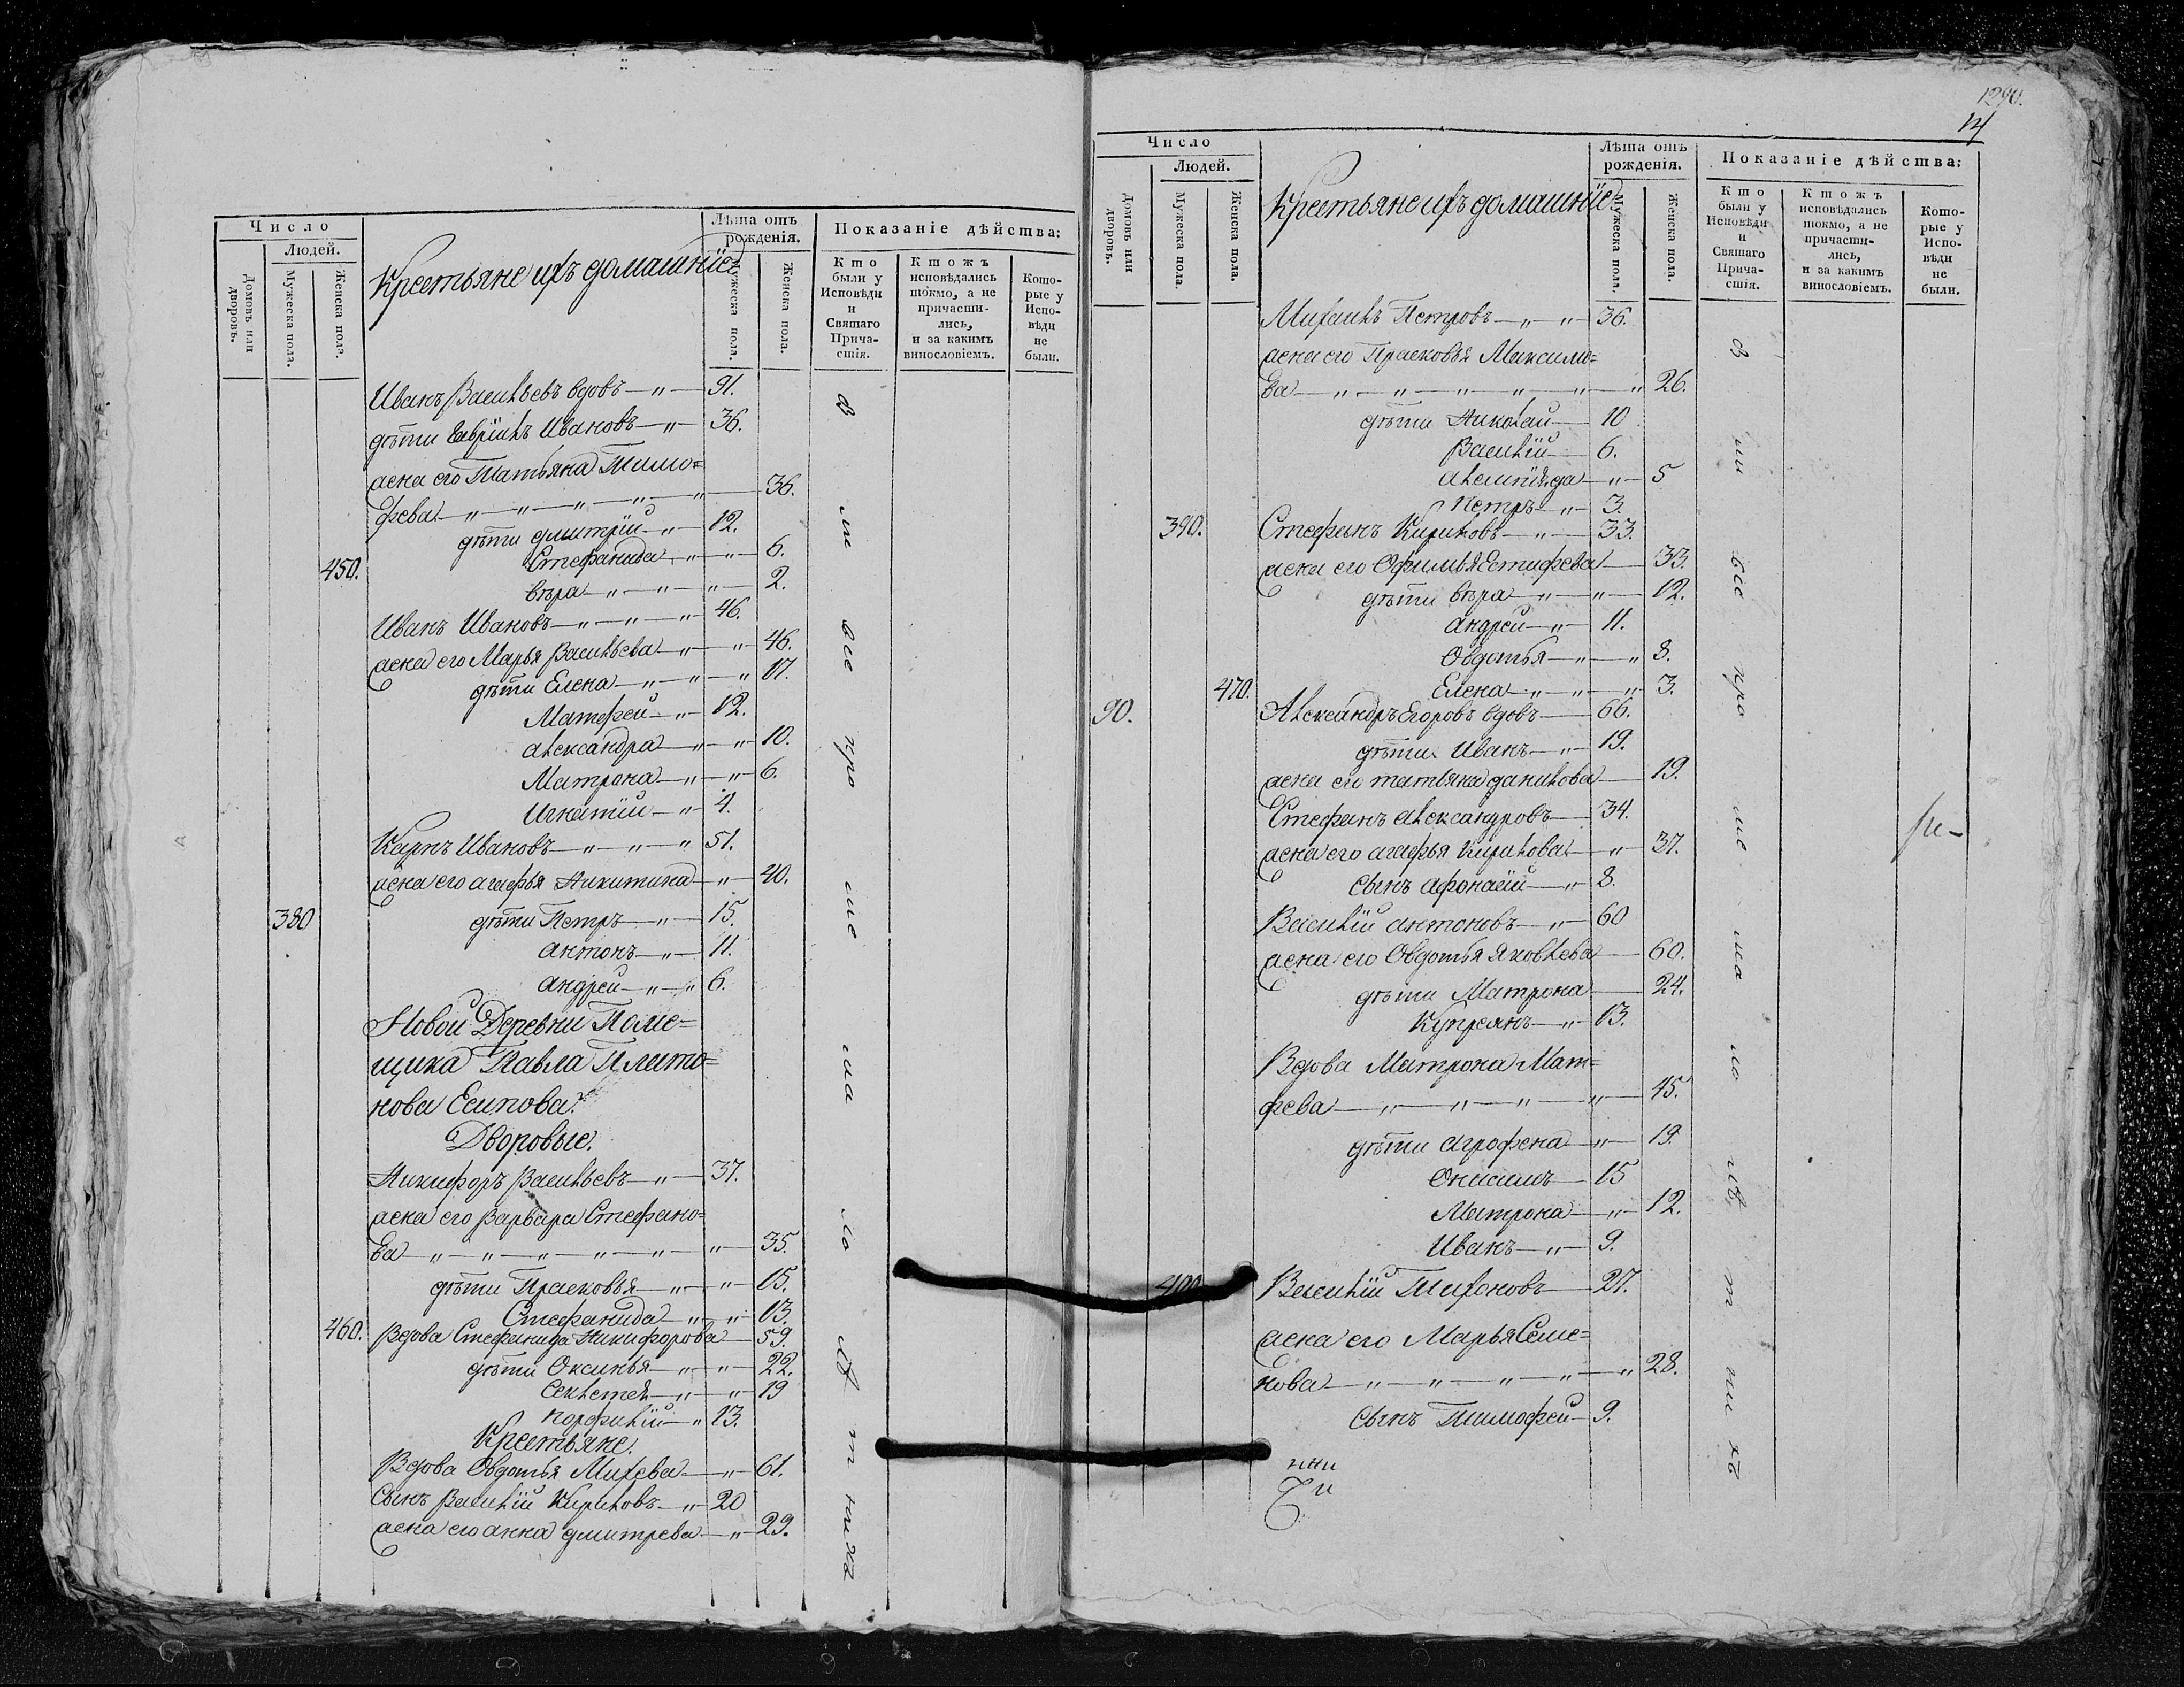 Число
Людей.
Домовъ или дворовъ.
Мужеска пола.
Женска пола.
Крестьяне ихъ домашнїе
Лѣта отъ рожденїя.
Мужеска пола.
Женска пола.
Показанїе дѣйства:
Кто были у Исповѣди и Святаго Причастїя.
Ктожъ исповѣдались токмо, а не причастились, и за какимъ винословіемъ.
Которые у Исповѣди не были.
Иванъ Васильевъ вдовъ — 91.
дѣти Гаврїилъ Ивановъ — 36.
жена его Татьяна Тимо=
фева — 36.
дѣти дмитрїй — 12.
450. Стефанида — 6.
вѣра — 2.
Иванъ Ивановъ — 46.
жена его Марья Васильева — 46.
дѣти Елена — 17.
Матфей — 12.
александра — 10.
Матрона — 6.
Игнатїй — 4.
Карпъ Ивановъ — 51.
жена его агафья Никитина — 40.
380 дѣти Петръ — 15.
антонъ — 11.
андрей — 6.
Новой Деревни Поме=
щика Павла Плато=
нова Есипова.
Дворовые.
Никифоръ Васильевъ — 37.
жена его Варвара Стефано=
ва — 35.
дѣти Прасковья — 15.
Стефанида — 13.
460. Вдова Стефанида Никифорова 59.
дѣти Оксинья — 22.
19
порфилїй — 13.
Крестьяне.
Вдова Овдотья Михева — 61.
Сынъ Василїй Кириловъ — 20
жена его анна дмитрева — 29.
1290.
14
Число
Людей.
Домовъ или дворовъ.
Мужеска пола.
Женска пола.
Крестьяне ихъ домашнїе
Лѣта отъ рожденїя.
Мужеска пола.
Женска пола.
Показанїе дѣйства:
Кто были у Исповѣди и Святаго Причастїя.
Ктожъ исповѣдались токмо, а не причастились, и за какимъ винословіемъ.
Которые у Исповѣди не были.
Михаилъ Петровъ — 36.
жена его Прасковья Максимо=
ва — 26.
дѣти Николай — 10
Василїй — 6.
5
Петръ — 3.
390. Стефанъ Кириловъ — 33.
жена его Офимья Естифева — 33.
дѣти вѣра — 12.
андрей — 11.
Овдотья — 8.
470. Елена — 3.
90. Александръ Егоровъ вдовъ — 66.
дѣти Иванъ — 19.
жена его татьяна данилова — 19.
Стефанъ александровъ — 34.
жена его агафья Кирилова — 37.
сынъ афонасїй — 8.
Василїй антоновъ — 60
жена его Овдотья Яковлева — 60.
дѣти Матрона — 24.
Купреянъ — 13.
Вдова Матрона Мат=
фева — 45.
дѣти агрофена — 19.
Онисимъ — 15
Матрона — 12.
Иванъ — 9.
400 Василїй Тихоновъ — 27.
жена его Марья Семе=
нова — 28.
сынъ Тимофей — 9.